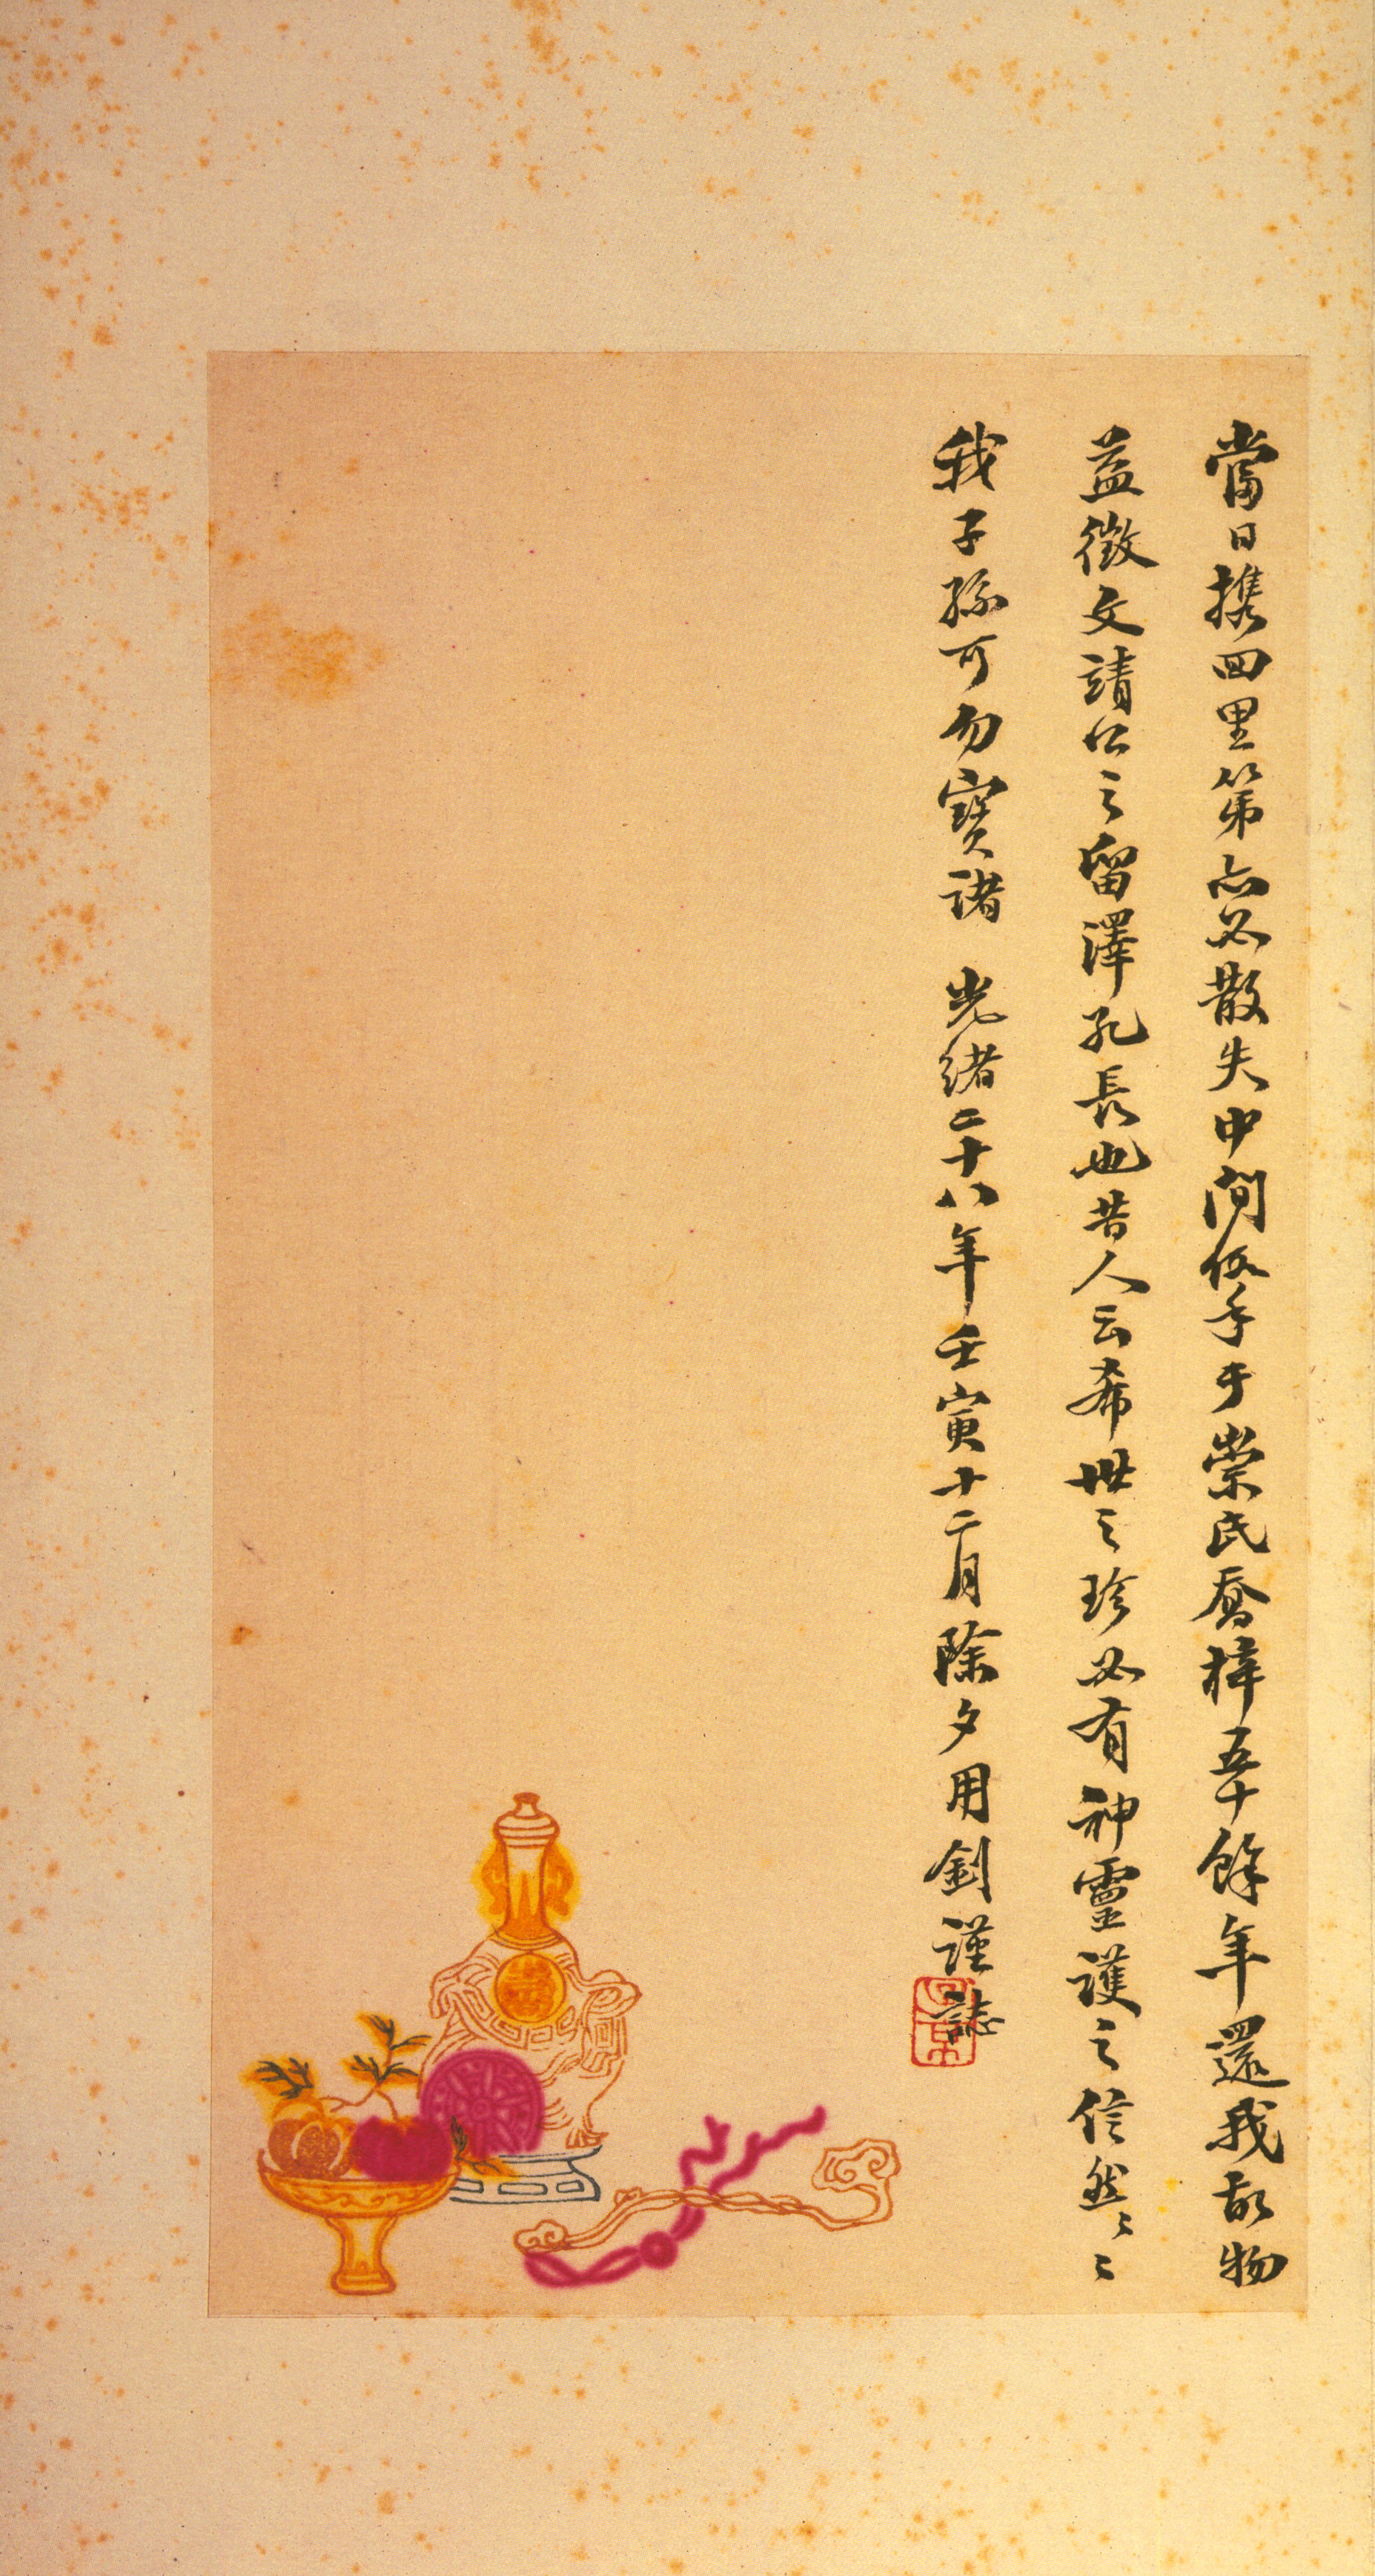 當日携回里第亦必散失中間假手于崇氏喬梓五十餘年還我故物
益徵文靖公之留澤孔長也昔人云希世之珍必有神靈護之信然信然
我子孫可勿寶諸 光緒二十八年壬寅十二月除夕用釗謹誌